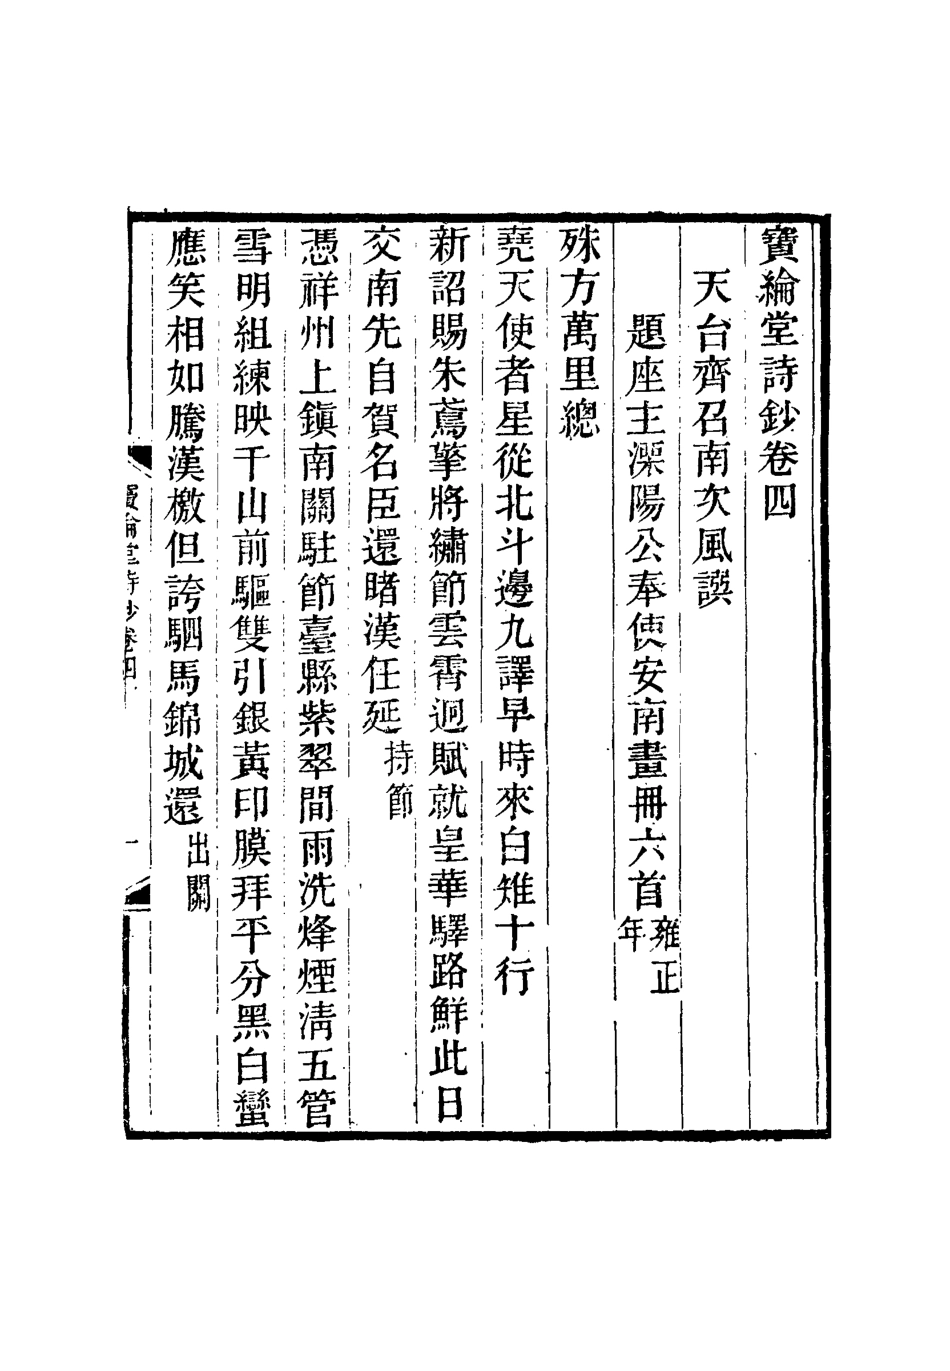 寶綸堂詩鈔卷四
天台齊召南次風譔
題座主溧陽公奉使安南畫冊六首雍正年
殊方萬里總
堯天使者星從北斗邊九譯早時來白雉十行
新詔賜朱鳶擎將繡節雲霄迥賦就皇華驛路鮮此日
交南先自賀名臣還睹漢任延持節
憑祥州上鎮南關駐節臺縣紫翠間雨洗烽煙淸五管
雪明組練映千山前驅雙引銀黃印膜拜平分黑白蠻
應笑相如騰漢檄但誇駟馬錦城還出關
寶綸堂詩鈔卷四
一